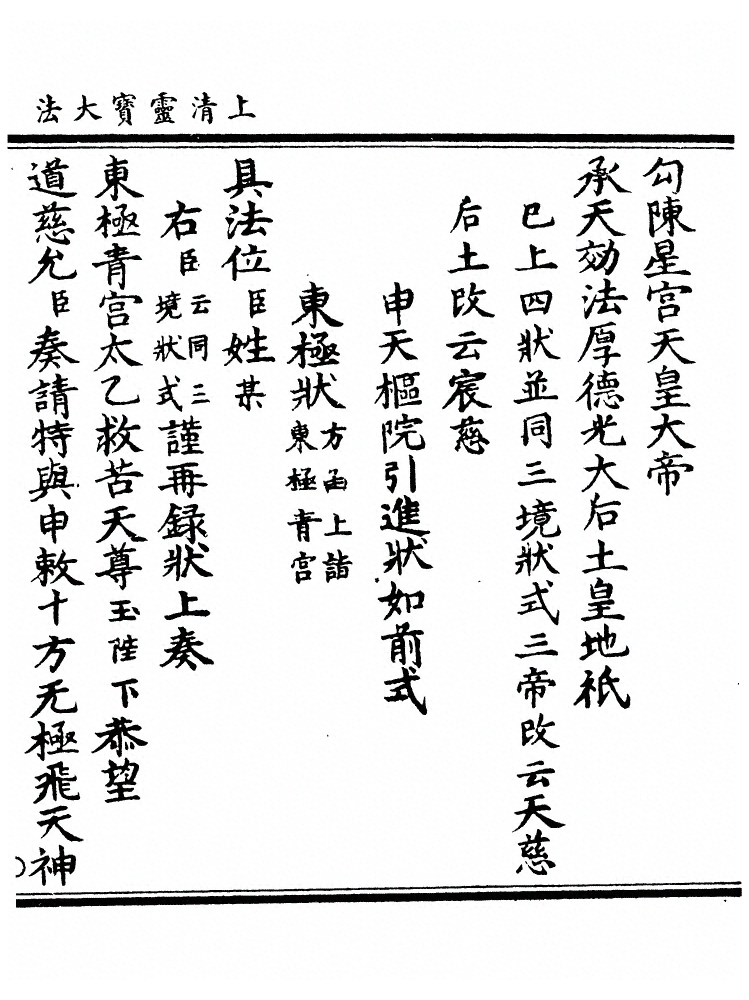 上清靈寶大法
勾陳星宮天皇大帝
承天効法厚德光大后土皇地祇
已上四狀並同三境狀式三帝改云天慈
后土改云宸慈
申天樞院引進狀如前式
東極狀方函上詣東極青宮
具法位臣姓某
右臣云同三境狀式謹再録狀上奏
東極青宮太乙救苦天尊玉陛下恭望
道慈允臣奏請特與申敕十方无極飛天神